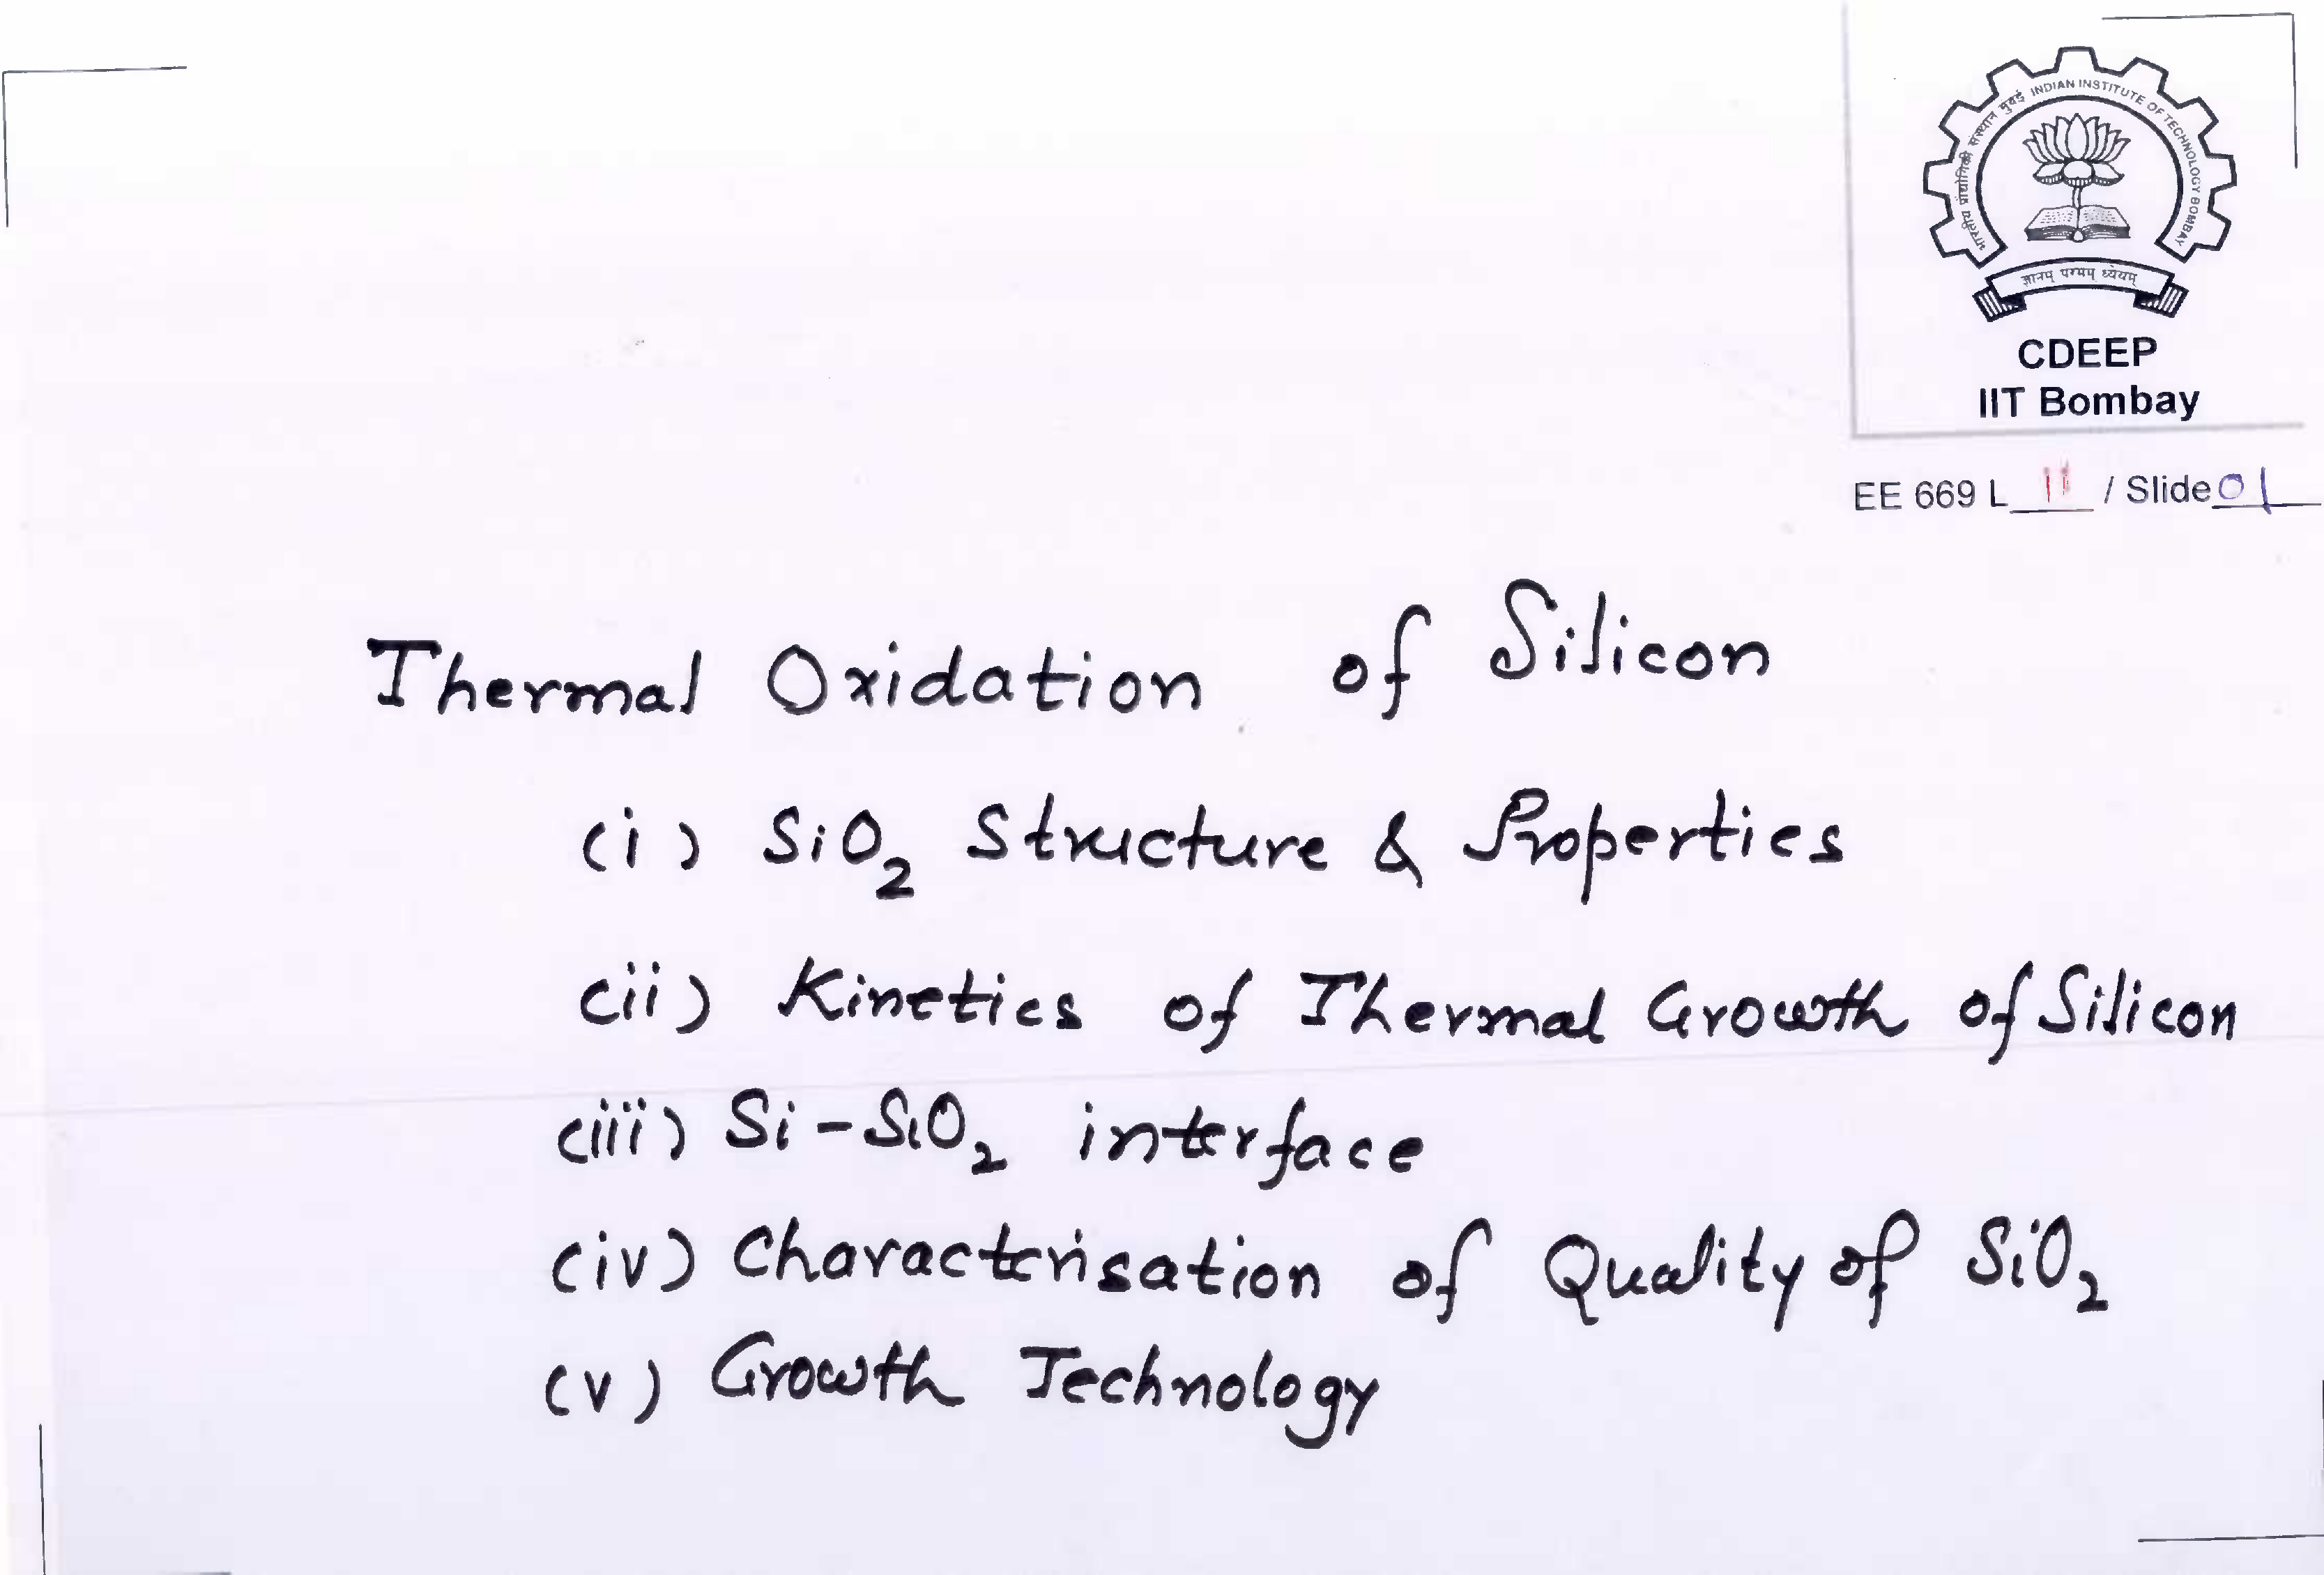 भारतीय प्रौद्योगिकी संस्थान मुंबई INDIAN INSTITUTE OF TECHNOLOGY BOMBAY
ज्ञानम् परमम् ध्येयम्
CDEEP
IIT Bombay
EE 669 L 11 / Slide 01
Thermal Oxidation of Silicon
(i) SiO₂ Structure & Properties
(ii) Kinetics of Thermal Growth of Silicon
(iii) Si-SiO₂ interface
(iv) Characterisation of Quality of SiO₂
(v) Growth Technology